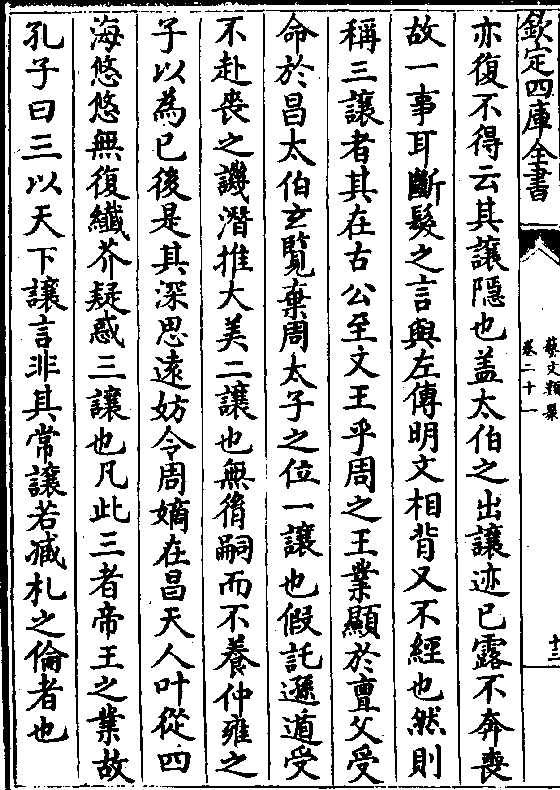 欽定四庫全書
藝文類聚
卷二十一
十三
亦復不得云其讓隱也盖太伯之出讓迹已露不奔喪
故一事耳斷髮之言與左傳明文相背又不經也然則
稱三讓者其在古公至文王乎周之王業顯於亶父受
命於昌太伯玄覽棄周太子之位一讓也假託遜遁受
不赴喪之譏潛推大美二讓也無胤嗣而不養仲雍之
子以為已後是其深思遠妨令周嫡在昌天人叶從四
海悠悠無復纎芥疑惑三讓也凡此三者帝王之業故
孔子曰三以天下讓言非其常讓若臧札之倫者也